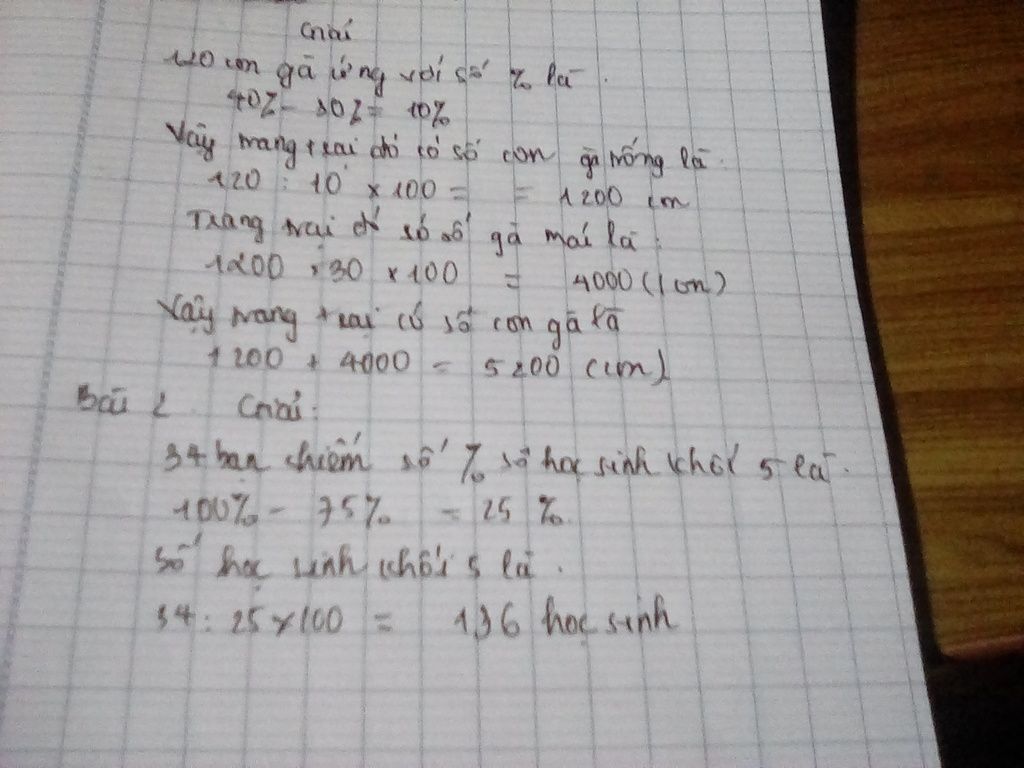 Giải
120 con gà ứng với số % là.
40% - 30% = 10%
Vậy trang trại đó có số con gà trống là.
120 : 10 × 100 = = 1200 con
Trang trại đó có số gà mái là
1200 : 30 × 100 = 4000 (con)
Vậy trang trại có số con gà là
1200 + 4000 = 5200 (con)
Bài 2 Giải:
34 bạn chiếm số % số học sinh khối 5 là.
100% - 75% = 25 %.
Số học sinh khối 5 là.
34 : 25 × 100 = 136 học sinh